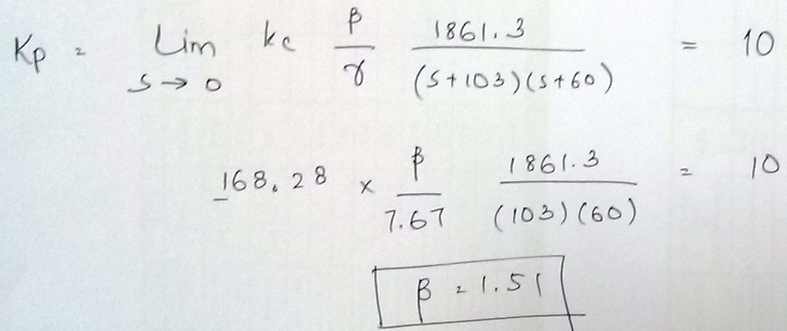 Kp = Lim s→0 kc β/γ 1861.3/(s+103)(s+60) = 10
168.28 × β/7.67 1861.3/(103)(60) = 10
β = 1.51